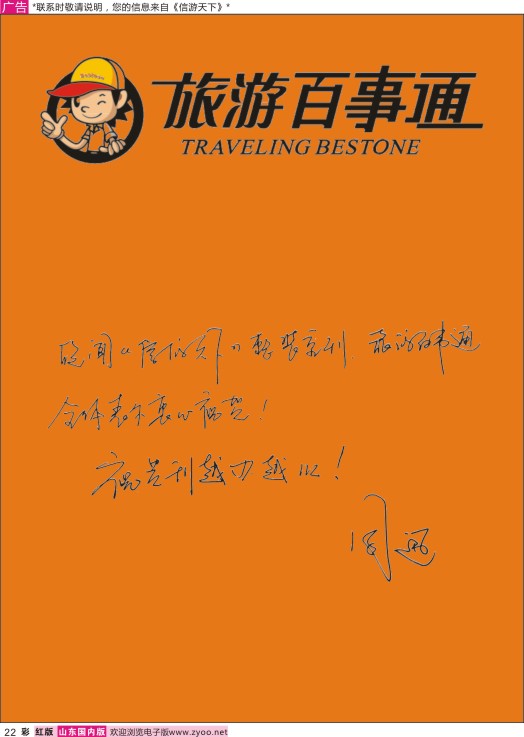 广告 *联系时敬请说明，您的信息来自《信游天下》*
旅游百事通
TRAVELING BESTONE
欣闻《信游天下》整装亮刊，旅游百事通
全体表示衷心祝贺！
祝贵刊越办越火！
22 彩 红版 山东国内版 欢迎浏览电子版www.zyoo.net